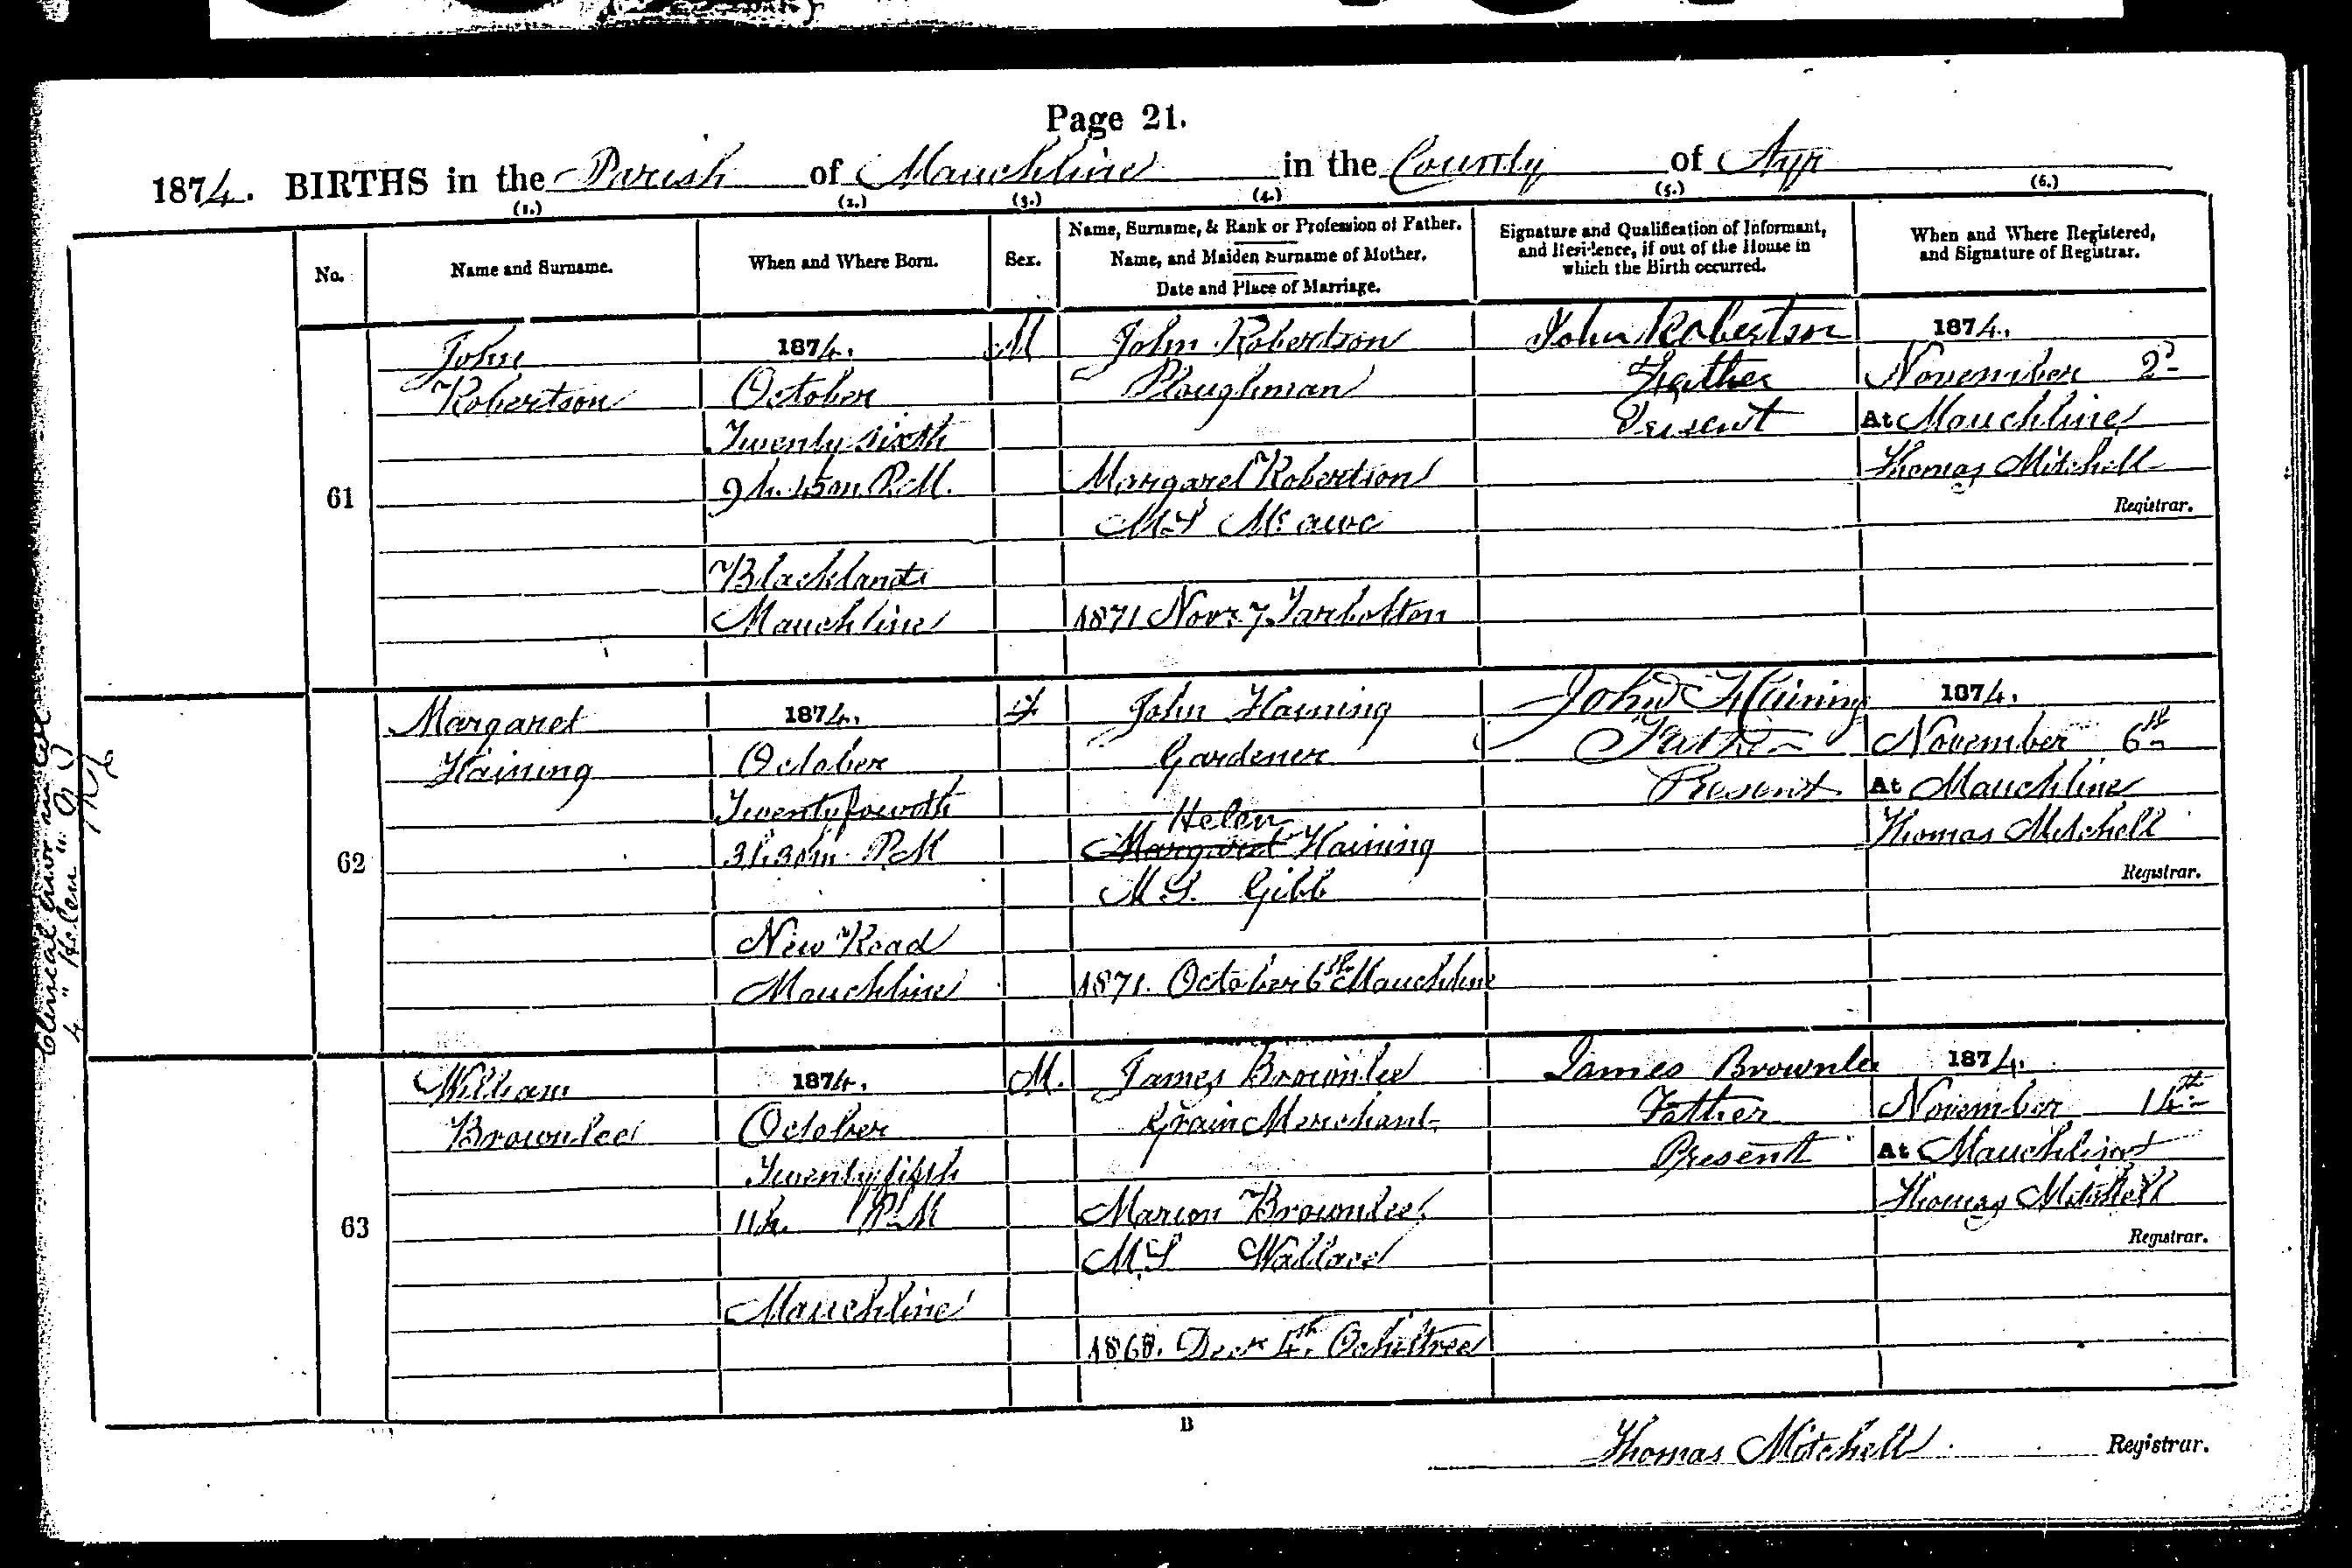 Page 21.
1874. BIRTHS in the Parish of Mauchline in the County of Ayr
(1.) (2.) (3.) (4.) (5.) (6.)
No.
Name and Surname.
When and Where Born.
Sex.
Name, Surname, & Rank or Profession of Father.
Name, and Maiden Surname of Mother.
Date and Place of Marriage.
Signature and Qualification of Informant,
and Residence, if out of the House in
which the Birth occurred.
When and Where Registered,
and Signature of Registrar.
61
John
Robertson
1874.
October
Twenty sixth
9h. 15m P.M.
Blacklands
Mauchline
M
John Robertson
Ploughman
Margaret Robertson
M.S
1871 Novr. 7 Tarbolton
John Robertson
Father
Present
1874.
November 2d
At Mauchline
Thomas Mitchell
Registrar.
Clerical error in Col
4 "Helen"
62
Margaret
Haining
1874.
October
Twenty fourth
3h. 30m P.M
New Road
Mauchline
F
John Haining
Gardener
Helen
Margaret Haining
M.S. Gibb
1871. October 6th Mauchline
John Haining
Father
Present
1874.
November 6th
At Mauchline
Thomas Mitchell
Registrar.
63
William
Brownlee
1874.
October
Twenty fifth
11h. P.M
Mauchline
M.
James Brownlee
Grain Merchant
Marion Brownlee
M.S Wallace
1868. Decr 4th. Ochiltree
James Brownlee
Father
Present
1874.
November 14th
At Mauchline
Thomas Mitchell
Registrar.
B
Thomas Mitchell Registrar.